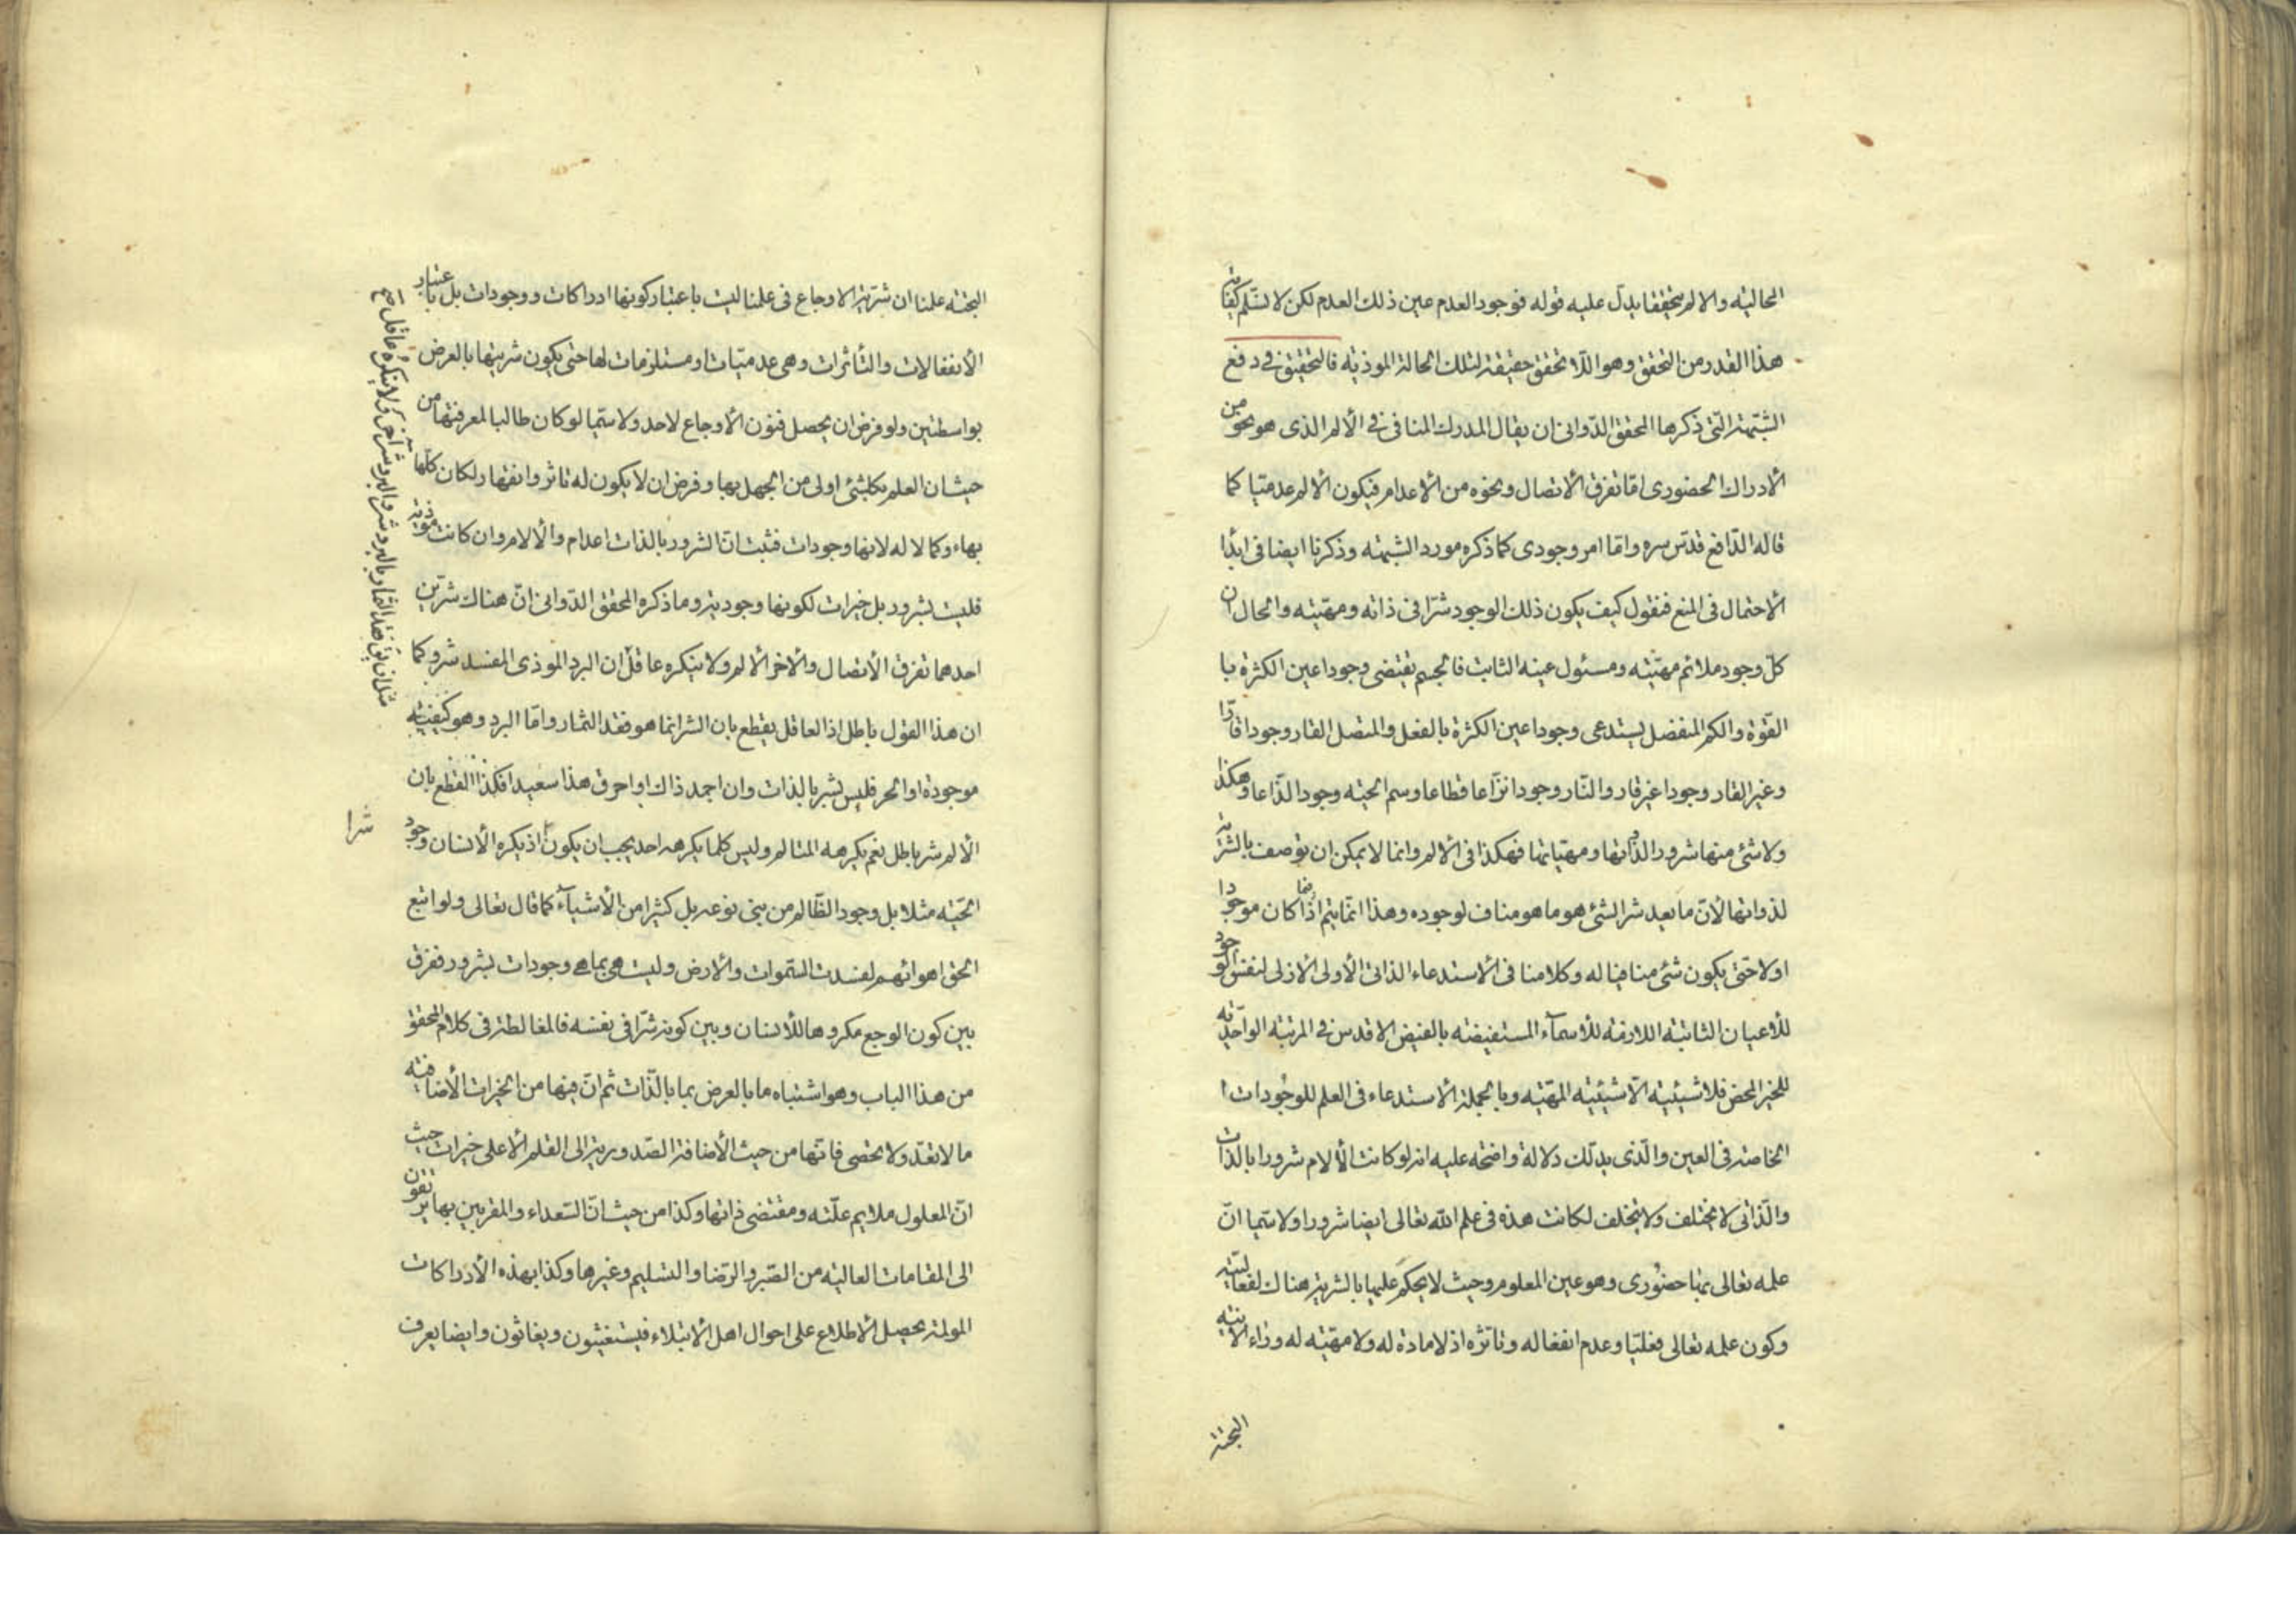 الحالیته والالم متحققا یدل علیه قوله فوجود العدم عین ذلك العدم لکن لا نسلم کفایة
هذا القدر من التحقق وهو اللا تحقق حقیقة لتلك الحالة الموذیته فالتحقیق فی دفع
الشبهة التی ذکرها المحقق الدوانی ان یقال المدرك المنافی فی الألم الذی هو نحو من
الأدراك الحضوری اما تفرق الأتصال ونحوه من الأعدام فیکون الألم عدمیا کما
قاله الدافع قدس سره واما امر وجودی کما ذکره مورد الشبهته وذکرنا ایضا فی ابداء
الأحتمال فی المنع فنقول کیف یکون ذلك الوجود شرا فی ذاته ومهیته والحال ان
کل وجود ملائم مهیته ومسئول عینه الثابت فالجسم یقتضی وجودا عین الکثرة با
القوة والکم المنفصل یستدعی وجودا عین الکثرة بالفعل والمتصل القار وجودا قارا
وغیر القار وجودا غیر قار والنار وجودا نزاعا قطاعا وسم الحیته وجودا لذاعا وهکذا
ولا شئ منها شرور الذواتها ومهیاتها فهکذا فی الألم وانما لا یمکن ان توصف بالشریة
لذواتها لأن ما یعد شرا لشئ هو ما هو مناف لوجوده وهذا انما یتم فیما اذا کان موجودا
اولا حتی یکون شئ منافیا له وکلامنا فی الأستدعاء الذاتی الأولی الأزلی لنفس الوجود
للأعیان الثابتة اللازمة للأسماء المستفیضته بالفیض الاقدس فی المرتبته الواحدیة
للخیر المحض فلا شیئیته الا شیئیته المهیته وبالجملة الأستدعاء فی العلم للوجودات ا
الخاصة فی العین والذی یدلك دلالة واضحه علیه انه لو کانت الألام شرورا بالذات
والذاتی لا یختلف ولا یتخلف لکانت هذه فی علم الله تعالی ایضا شرورا ولا سیما ان
علمه تعالی بها حضوری وهو عین المعلوم وحیث لا یحکم علیها بالشریة هناك لفعالیته
وکون علمه تعالی فعلیا وعدم انفعاله وتاثره اذ لا مادة له ولا مهیته له وراء الأنیته
البحتة
البحتة علمنا ان شریة الاوجاع فی علمنا لیست باعتبار کونها ادراکات ووجودات بل باعتبار
الأنفعالات والتأثرات وهی عدمیات او مستلزمات لها حتی یکون شریتها بالعرض
بواسطتین ولو فرض ان یحصل فنون الأوجاع لاحد ولا سیما لو کان طالبا لمعرفتها من
حیث ان العلم بکلشئ اولی من الجهل بها وفرض ان لا یکون له تاثر وانقهار لکان کلها
بهاء وکمالا له لانها وجودات فثبت ان الشرور بالذات اعدام والألام وان کانت موذیة
فلیست بشرور بل خیرات لکونها وجودیة وما ذکره المحقق الدوانی ان هناك شرین
احدهما تفرق الأتصال والأخر الألم ولا ینکره عاقل ان البرد الموذی المفسد شر وکما
ان هذا القول باطل اذ العاقل یقطع بان الشر انما هو فقد الثمار واما البرد وهو کیفیته
موجودة او الحر فلیس بشر بالذات وان اجمد ذاك او احرق هذا سعیدا فکذا القطع بان
الألم شر باطل نعم یکرهه المتالم ولیس کلما یکرهه احد یجب ان یکون اذ یکره الأنسان وجود
شرا
الحیته مثلا بل وجود الظالم من بنی نوعه بل کثیرا من الأشیاء کما قال تعالی ولو اتبع
الحق اهوائهم لفسدت السموات والأرض ولیست هی بما هی وجودات بشرور ففرق
بین کون الوجع مکروها للأنسان وبین کونه شرا فی نفسه فالمغالطة فی کلام المحقق
من هذا الباب وهو اشتباه ما بالعرض بما بالذات ثم ان فیها من الخیرات الأضافیته
ما لا تعد ولا تحصی فانها من حیث الأضافة الصدوریة الی القلم الأعلی خیرات حیث
ان المعلول ملایم علته ومقتضی ذاتها وکذا من حیث ان السعداء والمقربین بها یرتقون
الی المقامات العالیته من الصبر والرضا والتسلیم وغیرها وکذا بهذه الأدراکات
المولمة یحصل الأطلاع علی احوال اهل الأبتلاء فیستغیثون ویغاثون وایضا یعرف
مثل ان یق فقد الثمار بالبرد شر والبرد شر آخر ولا ینکره عاقل